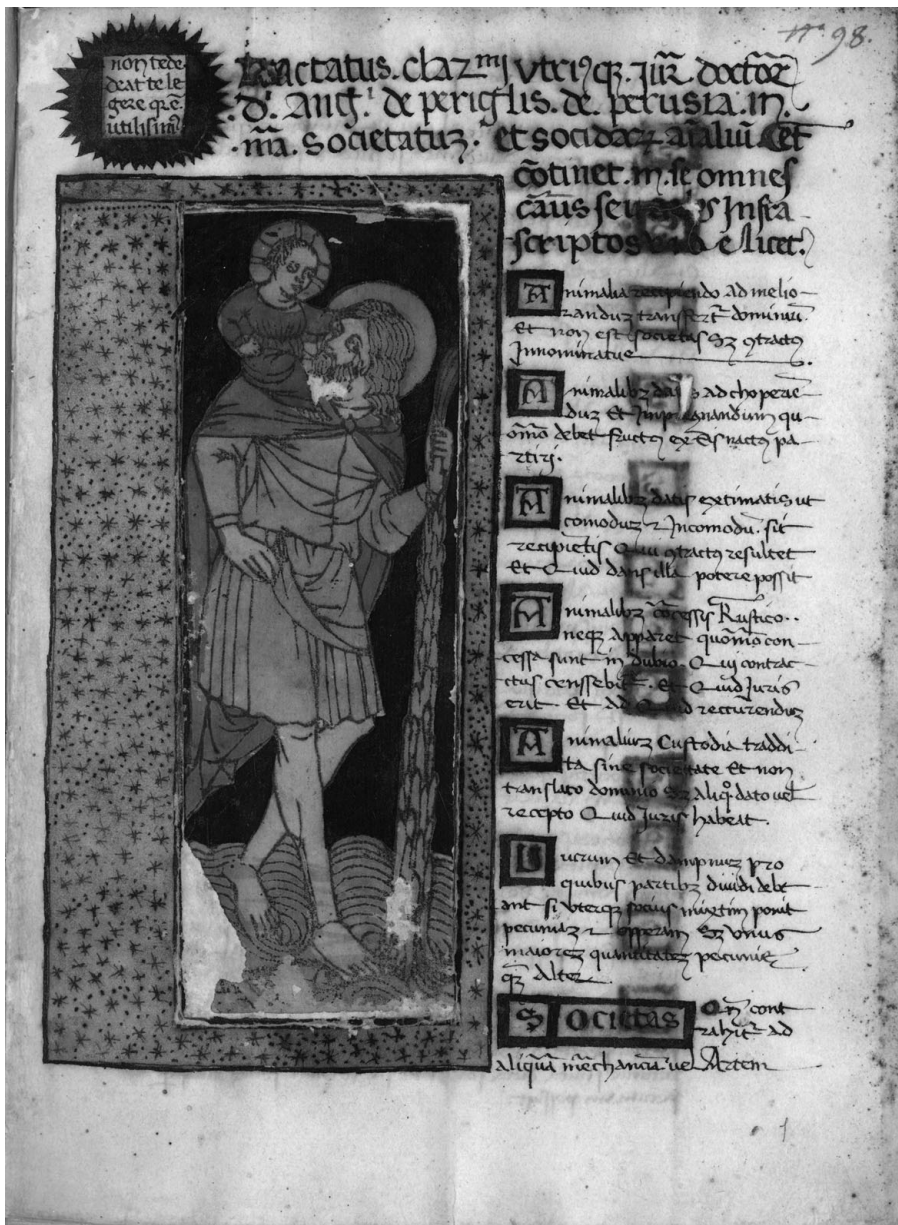 nº 98.
non tede
deat te le
gere q̄ ē
utilissim9
Tractatus. clazmj vtrisqz. Jur̄ doctor̄
.D. Angli. de periglis. de perusia. in.
.mā. Societatuz. et socidaꝝ aīaliū et
c̄otinet. in. se omnes
cāus seu infra
scriptos licet.
Animalia recipiendo ad melio-
randuz transfert dominiū.
Et non est societas sz ꝯtractꝰ
Innominatus
Animalibz datis ad choperiē-
duz Et Impregnandum qu-
om̄o debet fructꝰ ex eis nactꝰ pa-
rtiri.
Animalibz datis extimatis ut
comoduz ⁊ Incomodū. sit
recipiētis Qui ꝯtractꝰ resultet
Et Quid dans illa potere possit
Animalibz cōcessis Rustico..
neqz apparet quom̄o con-
cessa sunt in dubio. Qui contrac-
ctus censsebit̄. Et Quid Juris
erit Et ad Quid reccurrenduz
Animaliuz Custodia traddi-
ta sine societate Et non
translato dominio sz aliqo. dato uel
recepto Quid Juris habeat.
Lucrum Et dampnuz pro
quibus partibz diuidi debe
ant si vterqz socius mixtim ponit
pecuniaz ⁊ opperam sz vnus
maiorez quantitatez pecunie
q̄m alter
Societas Qn̄ cont
rahit̄ ad
aliquā mēchanicā. uel Artem
1